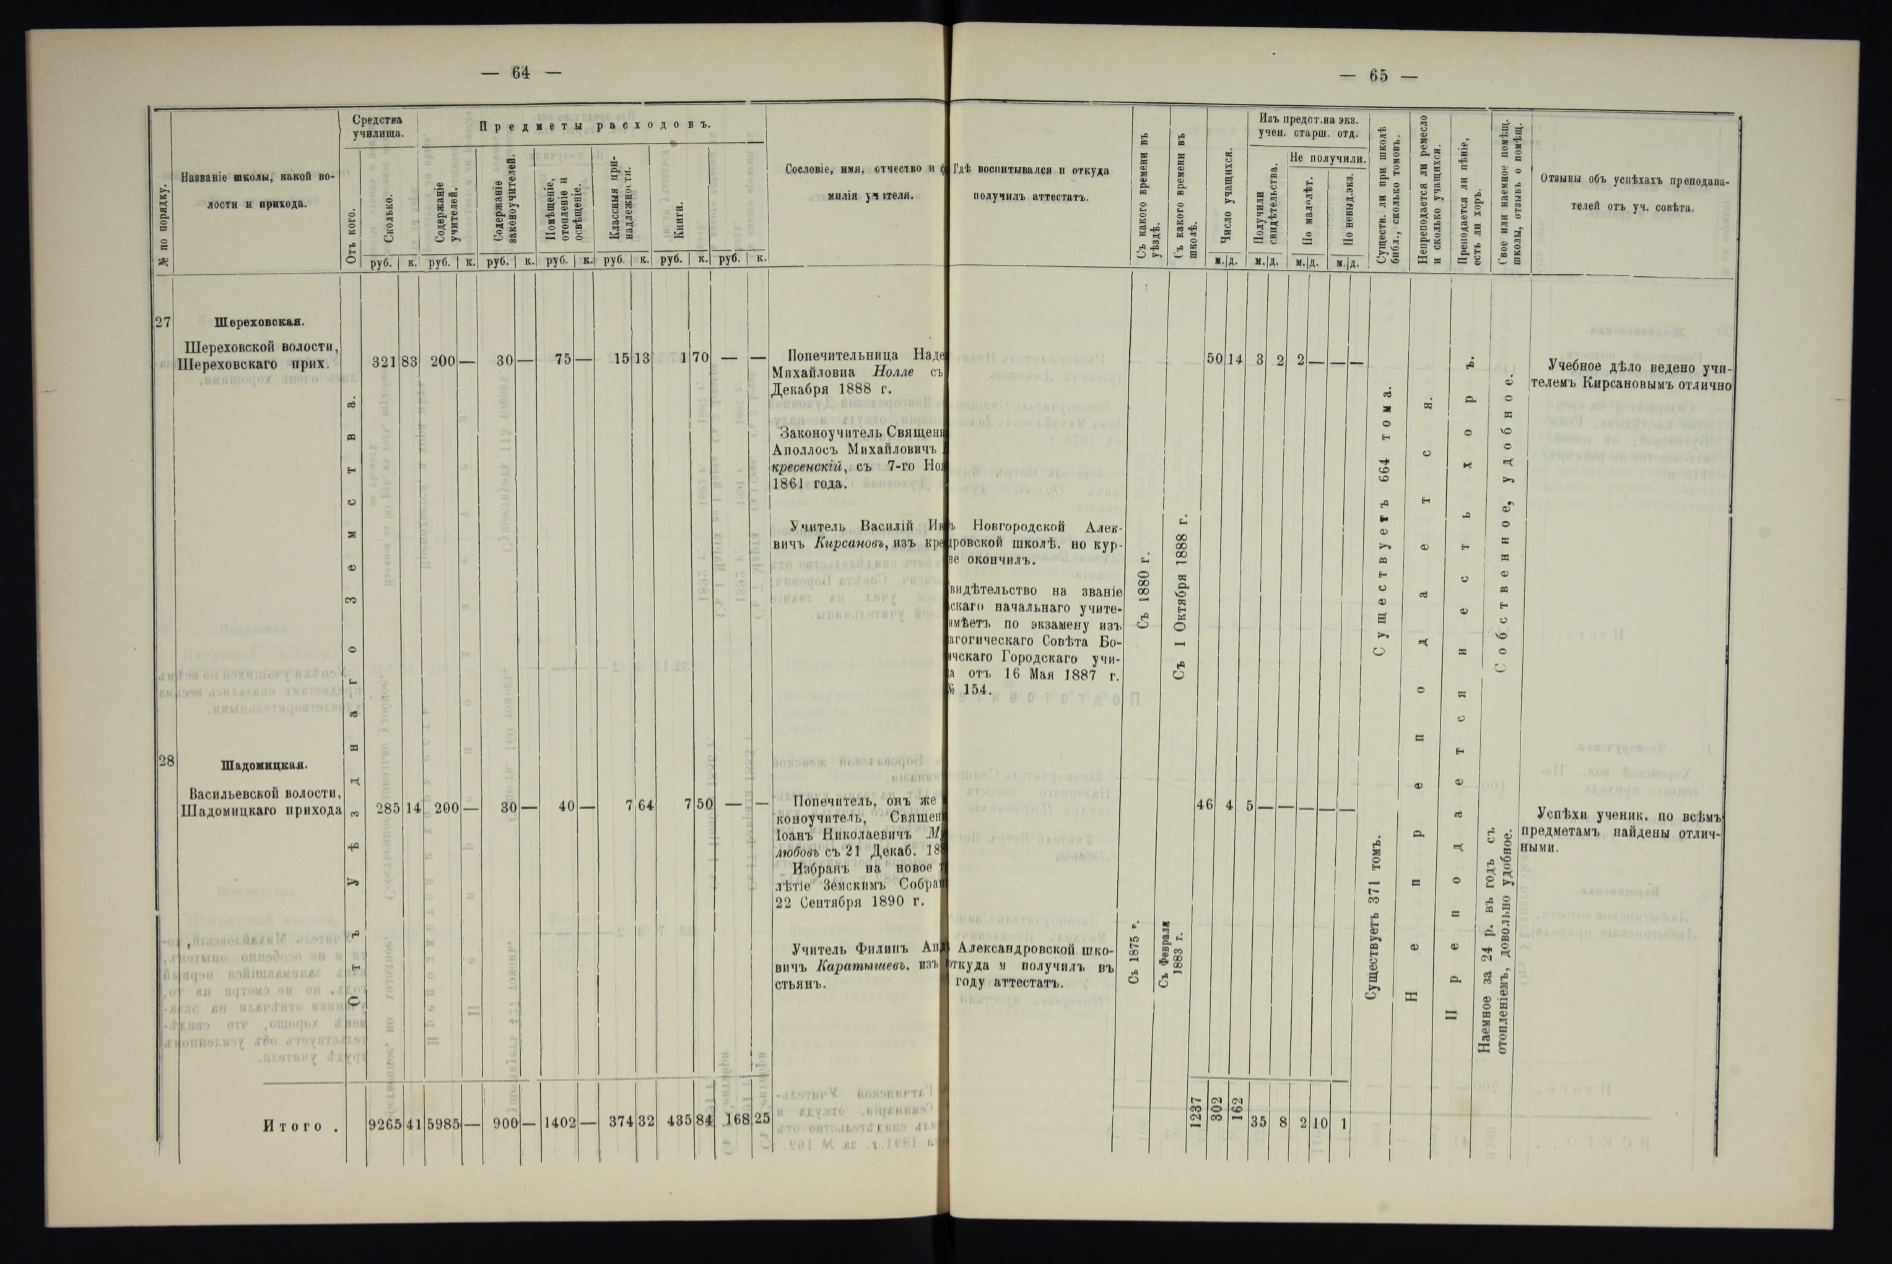 — 64 —
№ по порядку.
Названіе школы, какой во-
лости и прихода.
Средства
училища.
Отъ кого.
Сколько.
руб. к.
Предметы расходовъ.
Содержаніе
учителей.
руб. к.
Содержаніе
законоучителей.
руб. к.
Помѣщеніе,
отопленіе и
освѣщеніе.
руб. к.
Классныя при-
надлежности.
руб. к.
Книги.
руб. к.
руб. к.
Сословіе, имя, отчество и
милія учителя.
27
Шереховская.
Шереховской волости,
Шереховскаго прих.
321 83 200 — 30 — 75 — 15 13 1 70 — —
Попечительница
Михайловна Нолле съ
Декабря 1888 г.
Законоучитель
Аполлосъ Михайловичъ
кресенскій, съ 7-го
1861 года.
Учитель Василій
вичъ Кирсановъ, изъ
Отъ уѣзднаго Земства.
28
Шадомицкая.
Васильевской волости,
Шадомицкаго прихода
285 14 200 — 30 — 40 — 7 64 7 50 — —
Попечитель, онъ же
коноучитель,
Іоанъ Николаевичъ
любовъ съ 21 Декаб.
Избранъ на новое
лѣтіе Земскимъ
22 Сентября 1890 г.
Учитель Филипъ
вичъ Каратышевъ, изъ
стьянъ.
Итого . 9265 41 5985 — 900 — 1402 — 374 32 435 84 168 25
— 65 —
Гдѣ воспитывался и откуда
получилъ аттестатъ.
Съ какого времени въ
уѣздѣ.
Съ какого времени въ
школѣ.
Число учащихся.
м. д.
Изъ предст. на экз.
учен. старш. отд.
Получили
свидѣтельства.
м. д.
Не получили.
По малолѣт.
м. д.
По невыд. экз.
м. д.
Существ. ли при школѣ
библ., сколько томовъ.
Непреподается ли ремесло
и сколько учащихся.
Преподается ли пѣніе,
есть ли хоръ.
Свое или наемное помѣщ.
школы, отзывъ о помѣщ.
Отзывы объ успѣхахъ преподава-
телей отъ уч. совѣта.
50 14 3 2 2 — — —
Новгородской Алек-
дровской школѣ. но кур-
не окончилъ.
видѣтельство на званіе
скаго начальнаго учите-
имѣетъ по экзамену изъ
агогическаго Совѣта Бо-
ичскаго Городскаго учи-
отъ 16 Мая 1887 г.
№ 154.
Съ 1880 г.
Съ 1 Октября 1888 г.
Существуетъ 664 тома.
Не преподается.
Преподается и есть хоръ.
Собственное, удобное.
Учебное дѣло ведено учи-
телемъ Кирсановымъ отлично
46 4 5 — — — — —
Александровской шко-
откуда и получилъ въ
году аттестатъ.
Съ 1875 г.
Съ Февраля
1883 г.
Существуетъ 371 томъ.
Наемное за 24 р. въ годъ съ
отопленіемъ, довольно удобное.
Успѣхи ученик. по всѣмъ
предметамъ найдены отлич-
ными.
1237 302 162 35 8 2 10 1